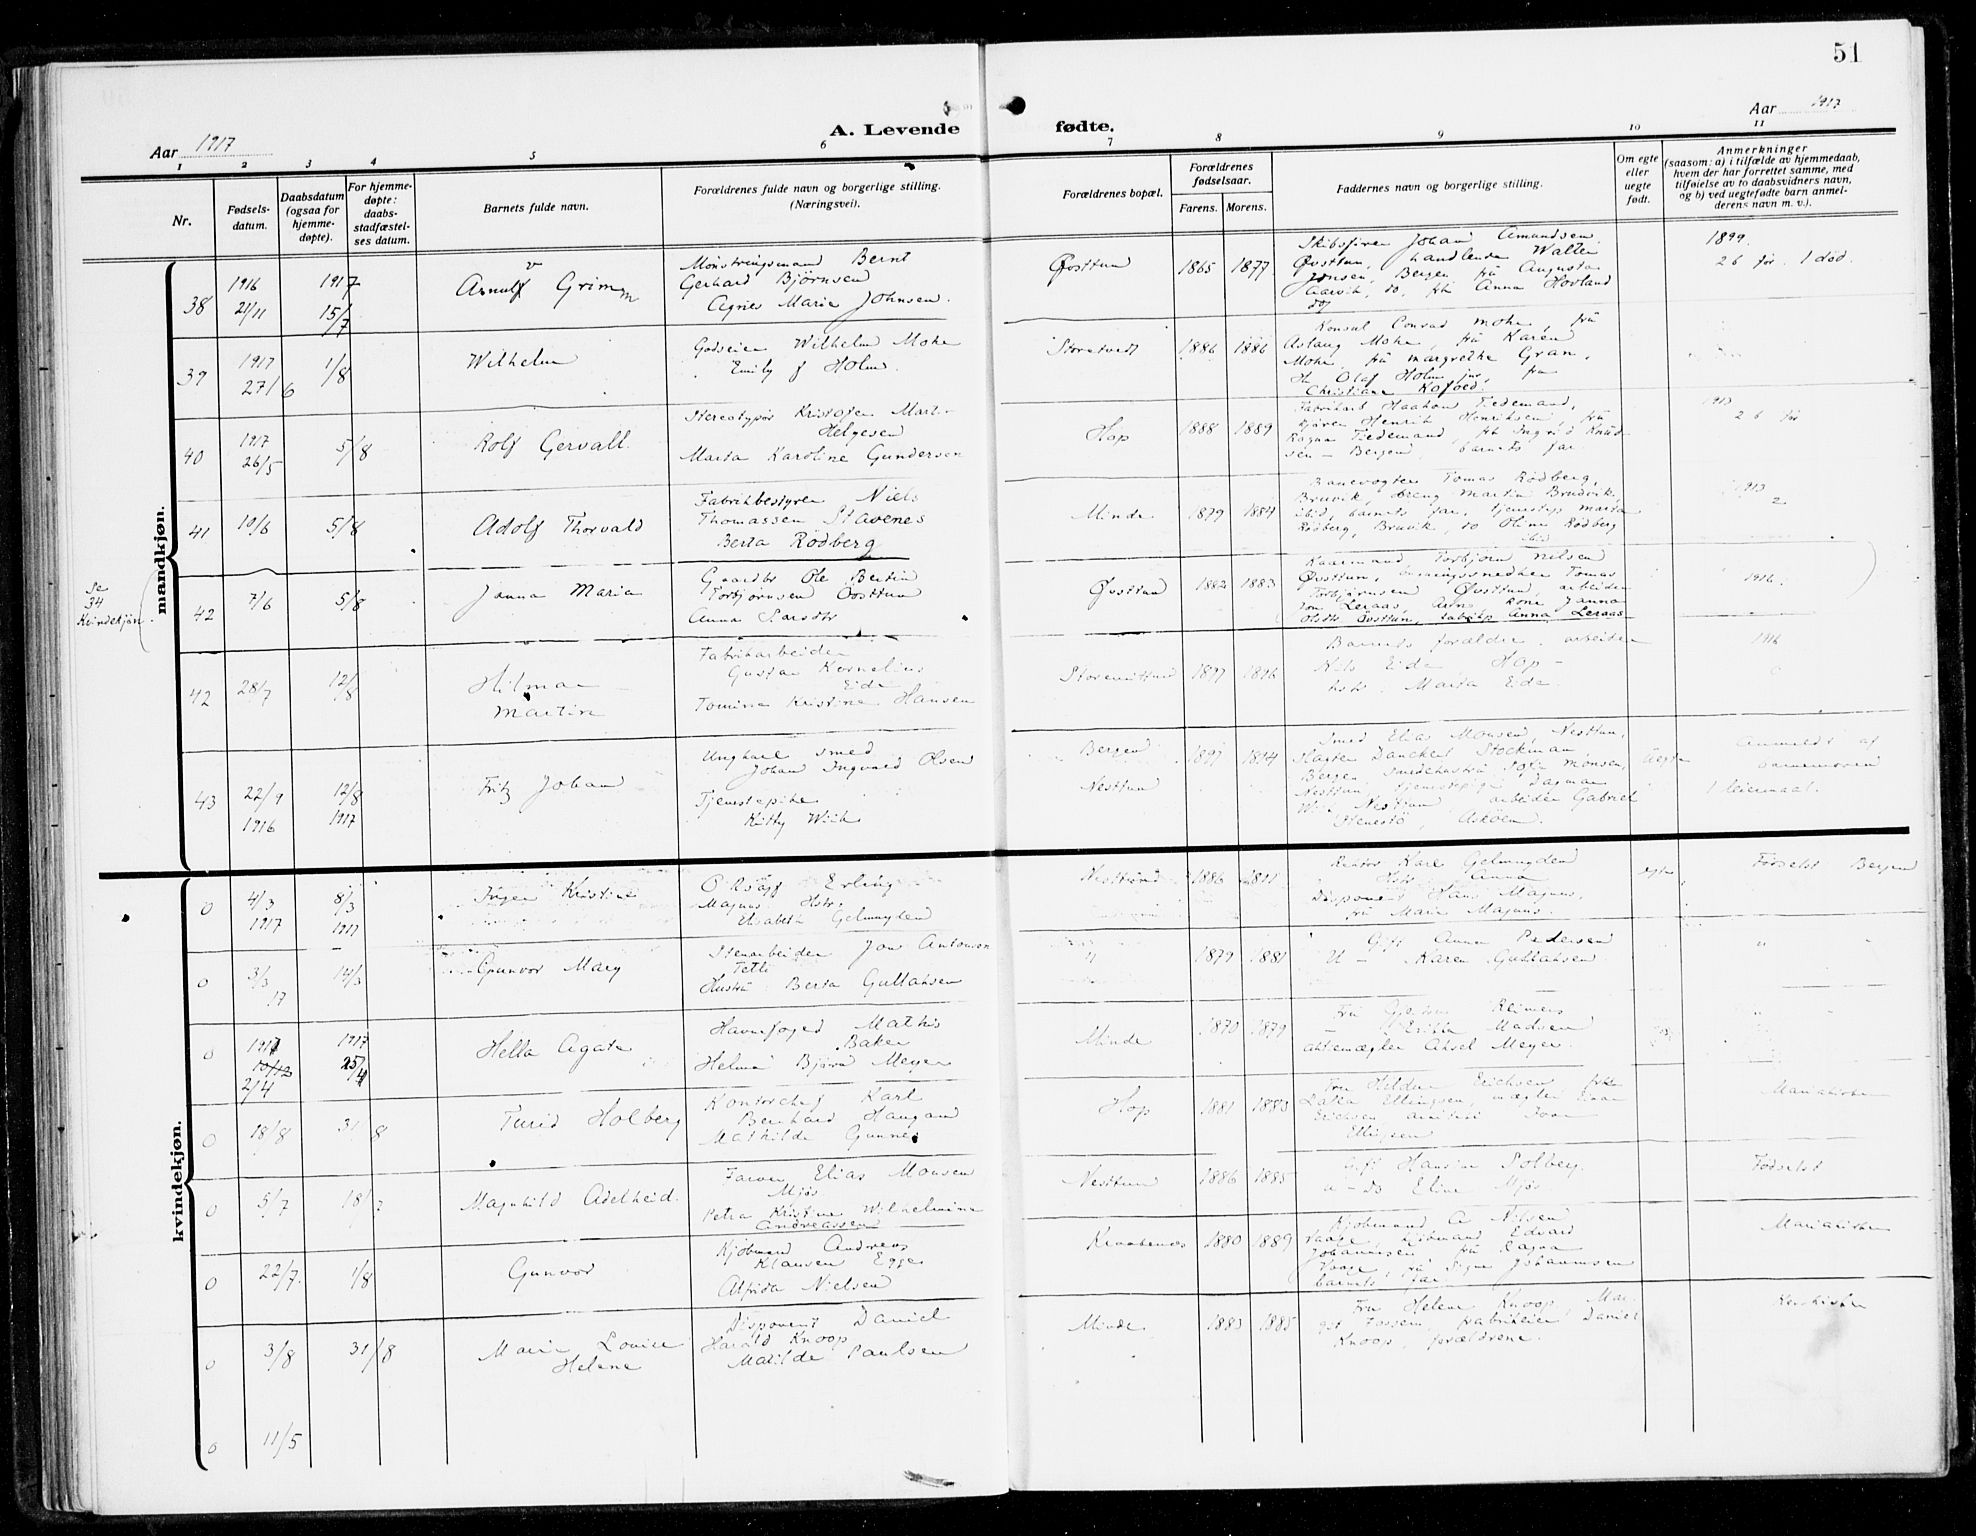 51
Aar 1917
A. Levende fødte.
Aar 1917
1 2 3 4 5 6 7 8 9 10 11
Nr.
Fødsels-
datum.
Daabsdatum
(ogsaa for
hjemme-
døpte).
For hjemme-
døpte:
daabs-
stadfæstel-
ses datum.
Barnets fulde navn.
Forældrenes fulde navn og borgerlige stilling.
(Næringsvei).
Forældrenes bopæl.
Forældrenes
fødselsaar.
Farens. Morens.
Faddernes navn og borgerlige stilling.
Om egte
eller
uegte
født.
Anmerkninger
(saasom: a) i tilfælde av hjemmedaab,
hvem der har forrettet samme, med
tilføielse av to daabsvidners navn,
og b) ved uegtefødte barn anmel-
derens navn m. v.).
mandkjøn.
38
1916
21/11
1917
15/7
Arnulf Grimm
Mønstringsmand Bernt
Gerhard Bjørnsen
Agnes Marie Johnsen.
Øvsttun
1865 1877
Skibsfører Johan Amundsen
Øvsttun, handlende Walter
Jonsen, Bergen, frk Augusta
Aarvik, do, frk Anna Hovland
1899.
26 før. 1 død.
39
1917
27/6
1/8
Wilhelm
Godseier Wilhelm Mohr
Emily f Holm.
Storetvedt
1886 1886
Konsul Conrad Mohr, fru
Aslaug Mohr, fru Karen
Mohr, fru Margrethe Gran,
Hr. Olaf Holm jur, fru
Christiane Kofoed.
40
1917
26/5
5/8
Rolf Gervall
Stereotypør Kristofer Mart.
Helgesen
Marta Karoline Gundersen
Hop
1888 1889
Fabrikarb Haakon Tiedemand,
Henrik Henriksen, fru
Ragna Tiedemand, frk Ingrid Knud-
sen - Bergen, barnets far.
1913
26 før
41
10/6
5/8
Adolf Thorvald
Fabrikbestyrer Niels
Thomassen Stavenes
Berta Rødberg
Minde
1879 1884
Banevogter Tomas Rødberg,
Bruvik, dreng Martin Brudvik,
ibid, barnets far, tjenestep Marta
Rødberg, Bruvik, do Oline Rødberg
ibid
1913
2
Se
34
Kvindekjøn
42
7/6
5/8
Janna Marie
Gaardbr Ole Bertin
Torbjørnsen Øvsttun
Anna Larsdtr
Øvsttun
1882 1883
Kaarmand Torbjørn Nilsen
Øvsttun, bygningssnedker Tomas
Torbjørnsen Øvsttun, arbeider
Jon Leraas, Arne, kone Janna
Olsdtr Øvsttun, fabrikp Anna Leraas
1916.
42
28/7
12/8
Hilmar
Martin
Fabrikarbeider
Gustav Kornelius
Eide
Tomine Kristine Hansen
1897 1896
Barnets forældre, arbeider
Nils Eide, Hop -
hstr. Marta Eide.
1916
43
22/9
1916
12/8
1917
Fritz Johan
Ungkarl smed
Johan Ingvald Olsen
Tjenestepike
Kitty Wiik
Bergen
Nesttun
1897 1894
Smed Elias Monsen, Nesttun,
Slagter Danckert Stockman,
Bergen, smedehustru Sofie Monsen,
Nesttun, tjenestepige Dagmar
Wiik Nesttun, arbeider Gabriel
Stenestø, Askøen.
Uegte
Anmeldt af
barnemoren
1 leiermaal.
kvindekjøn.
0
4/3
1917
8/3
1917
Inger Kristine
Erling
Magnus Hstr.
Elisabeth Gelmuyden
1886
Rektor Karl Gelmuyden
Hstr Anna
Disponent Hans Magnus,
fru Marie Magnus.
egte
Fødselst Bergen
0
3/3
17
14/3
Gunvor Mary
Stenarbeider Jon Antonson
Tetli
Hustru Berta Gullaksen
"
1879 1881
Gift Anna Pedersen
U - Karen Gullaksen
"
"
0
1917
10/12
2/4
1917
25/4
Hella Agate
Havnefoged Mathis
Baker
Helma Bjørn Meyer
Minde
1870 1879
Fru Reimers
Madsen
aktemægler Aksel Meyer.
0
18/8
31/8
Turid Holberg
Kontorchef Karl
Bernhard Haugand
Mathilde Gunner
Hop
1881 1883
Fru Hildur Erichsen, frk
Ellingsen, mægler Einar
Erichsen, Ivar
Ellingsen
Mariakirken
0
5/7
18/7
Magnhild Adelheid.
Farver Elias Monsen
Mjøs
Petra Kristine Wilhelmine
Andreassen
Nesttun
1886 1885
Gift Hansine Solberg.
u - do Eline Mjøs
Fødselst
0
22/7.
1/8
Gunvor
Kjøbmand Andreas
Klausen Egge
Alfrida Nielsen
Kraakenes
1880 1889
Kjøbmand A Nilsen
Vaage, kjøbmand Edvard
Johannesen, fru Ragna
Vaage, fru Signe Johannesen
barnets far
Mariakirken
0
3/8
31/8
Marie Louise
Helene
Disponent Daniel
Harald Knoop
Matilde Paulsen
Minde
1883 1885
Fru Helene Knoop, Mar-
got Fossem, fabrikeier Daniel
Knoop, forældrene.
Korskirken
0
11/5